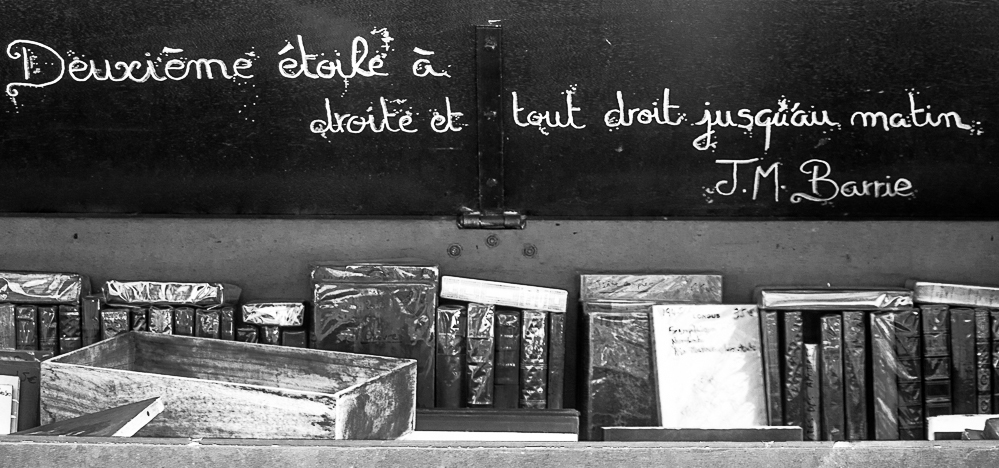 Deuxième étoile à
droite et tout droit jusqu'au matin
J.M. Barrie